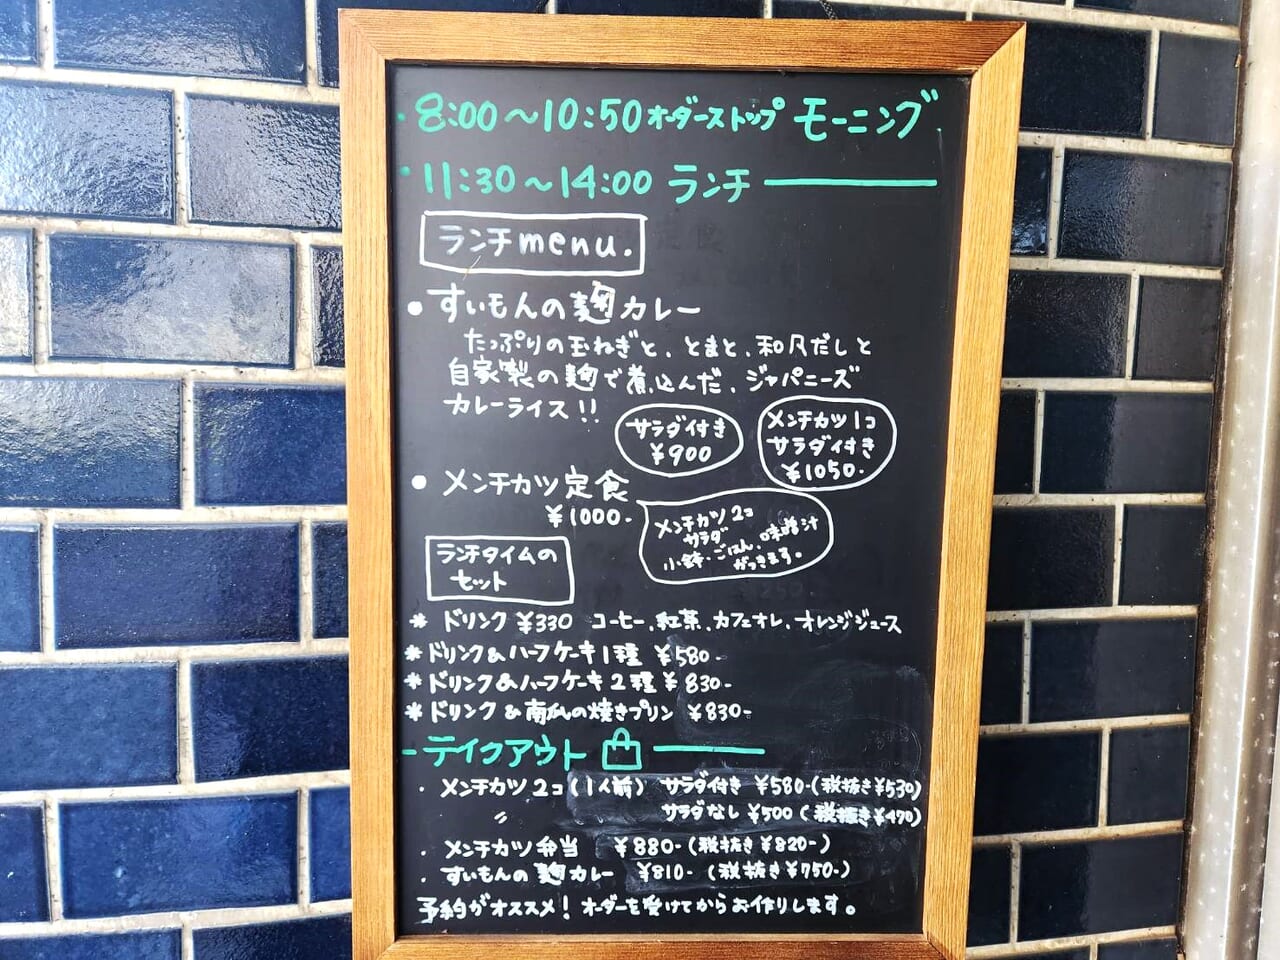 ・8:00〜10:50オーダーストップ モーニング
・11:30〜14:00 ランチ
ランチmenu.
● すいもんの麹カレー
たっぷりの玉ねぎと、とまと、和風だしと
自家製の麹で煮込んだ、ジャパニーズ
カレーライス!!
サラダ付き
¥900
メンチカツ1コ
サラダ付き
¥1050-
● メンチカツ定食
¥1000-
メンチカツ2コ
サラダ
小鉢、ごはん、味噌汁
がつきます。
ランチタイムの
セット
* ドリンク ¥330 コーヒー、紅茶、カフェオレ、オレンジジュース
* ドリンク&ハーフケーキ1種 ¥580-
* ドリンク&ハーフケーキ2種 ¥830-
* ドリンク&南瓜の焼きプリン ¥830-
テイクアウト
・メンチカツ2コ(1人前) サラダ付き ¥580-(税抜き¥530)
〃 サラダなし ¥500(税抜き¥470)
・メンチカツ弁当 ¥880-(税抜き¥820-)
・すいもんの麹カレー ¥810-(税抜き¥750-)
予約がオススメ!オーダーを受けてからお作りします。